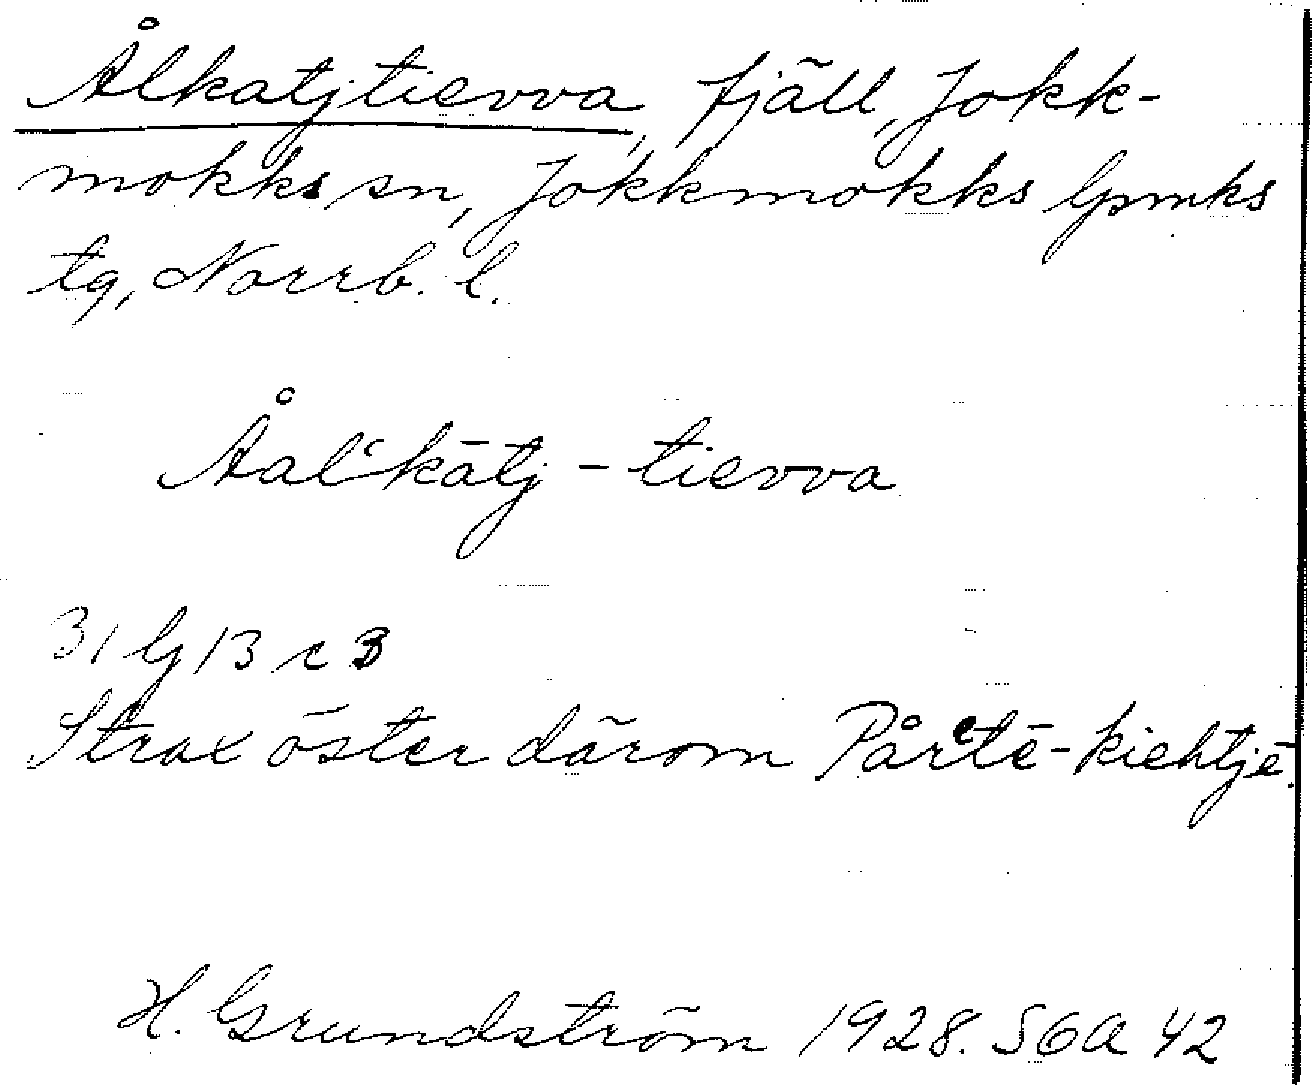 Ålkatjtievva, fjäll, Jokk-
mokks sn, Jokkmokks lpmks
tg, Norrb. l.
Åal‘kātj-tievva
31 lj 13 c 3
Strax öster därom Pårtē-kiehtjē.
H. Grundström 1928. SOA 42